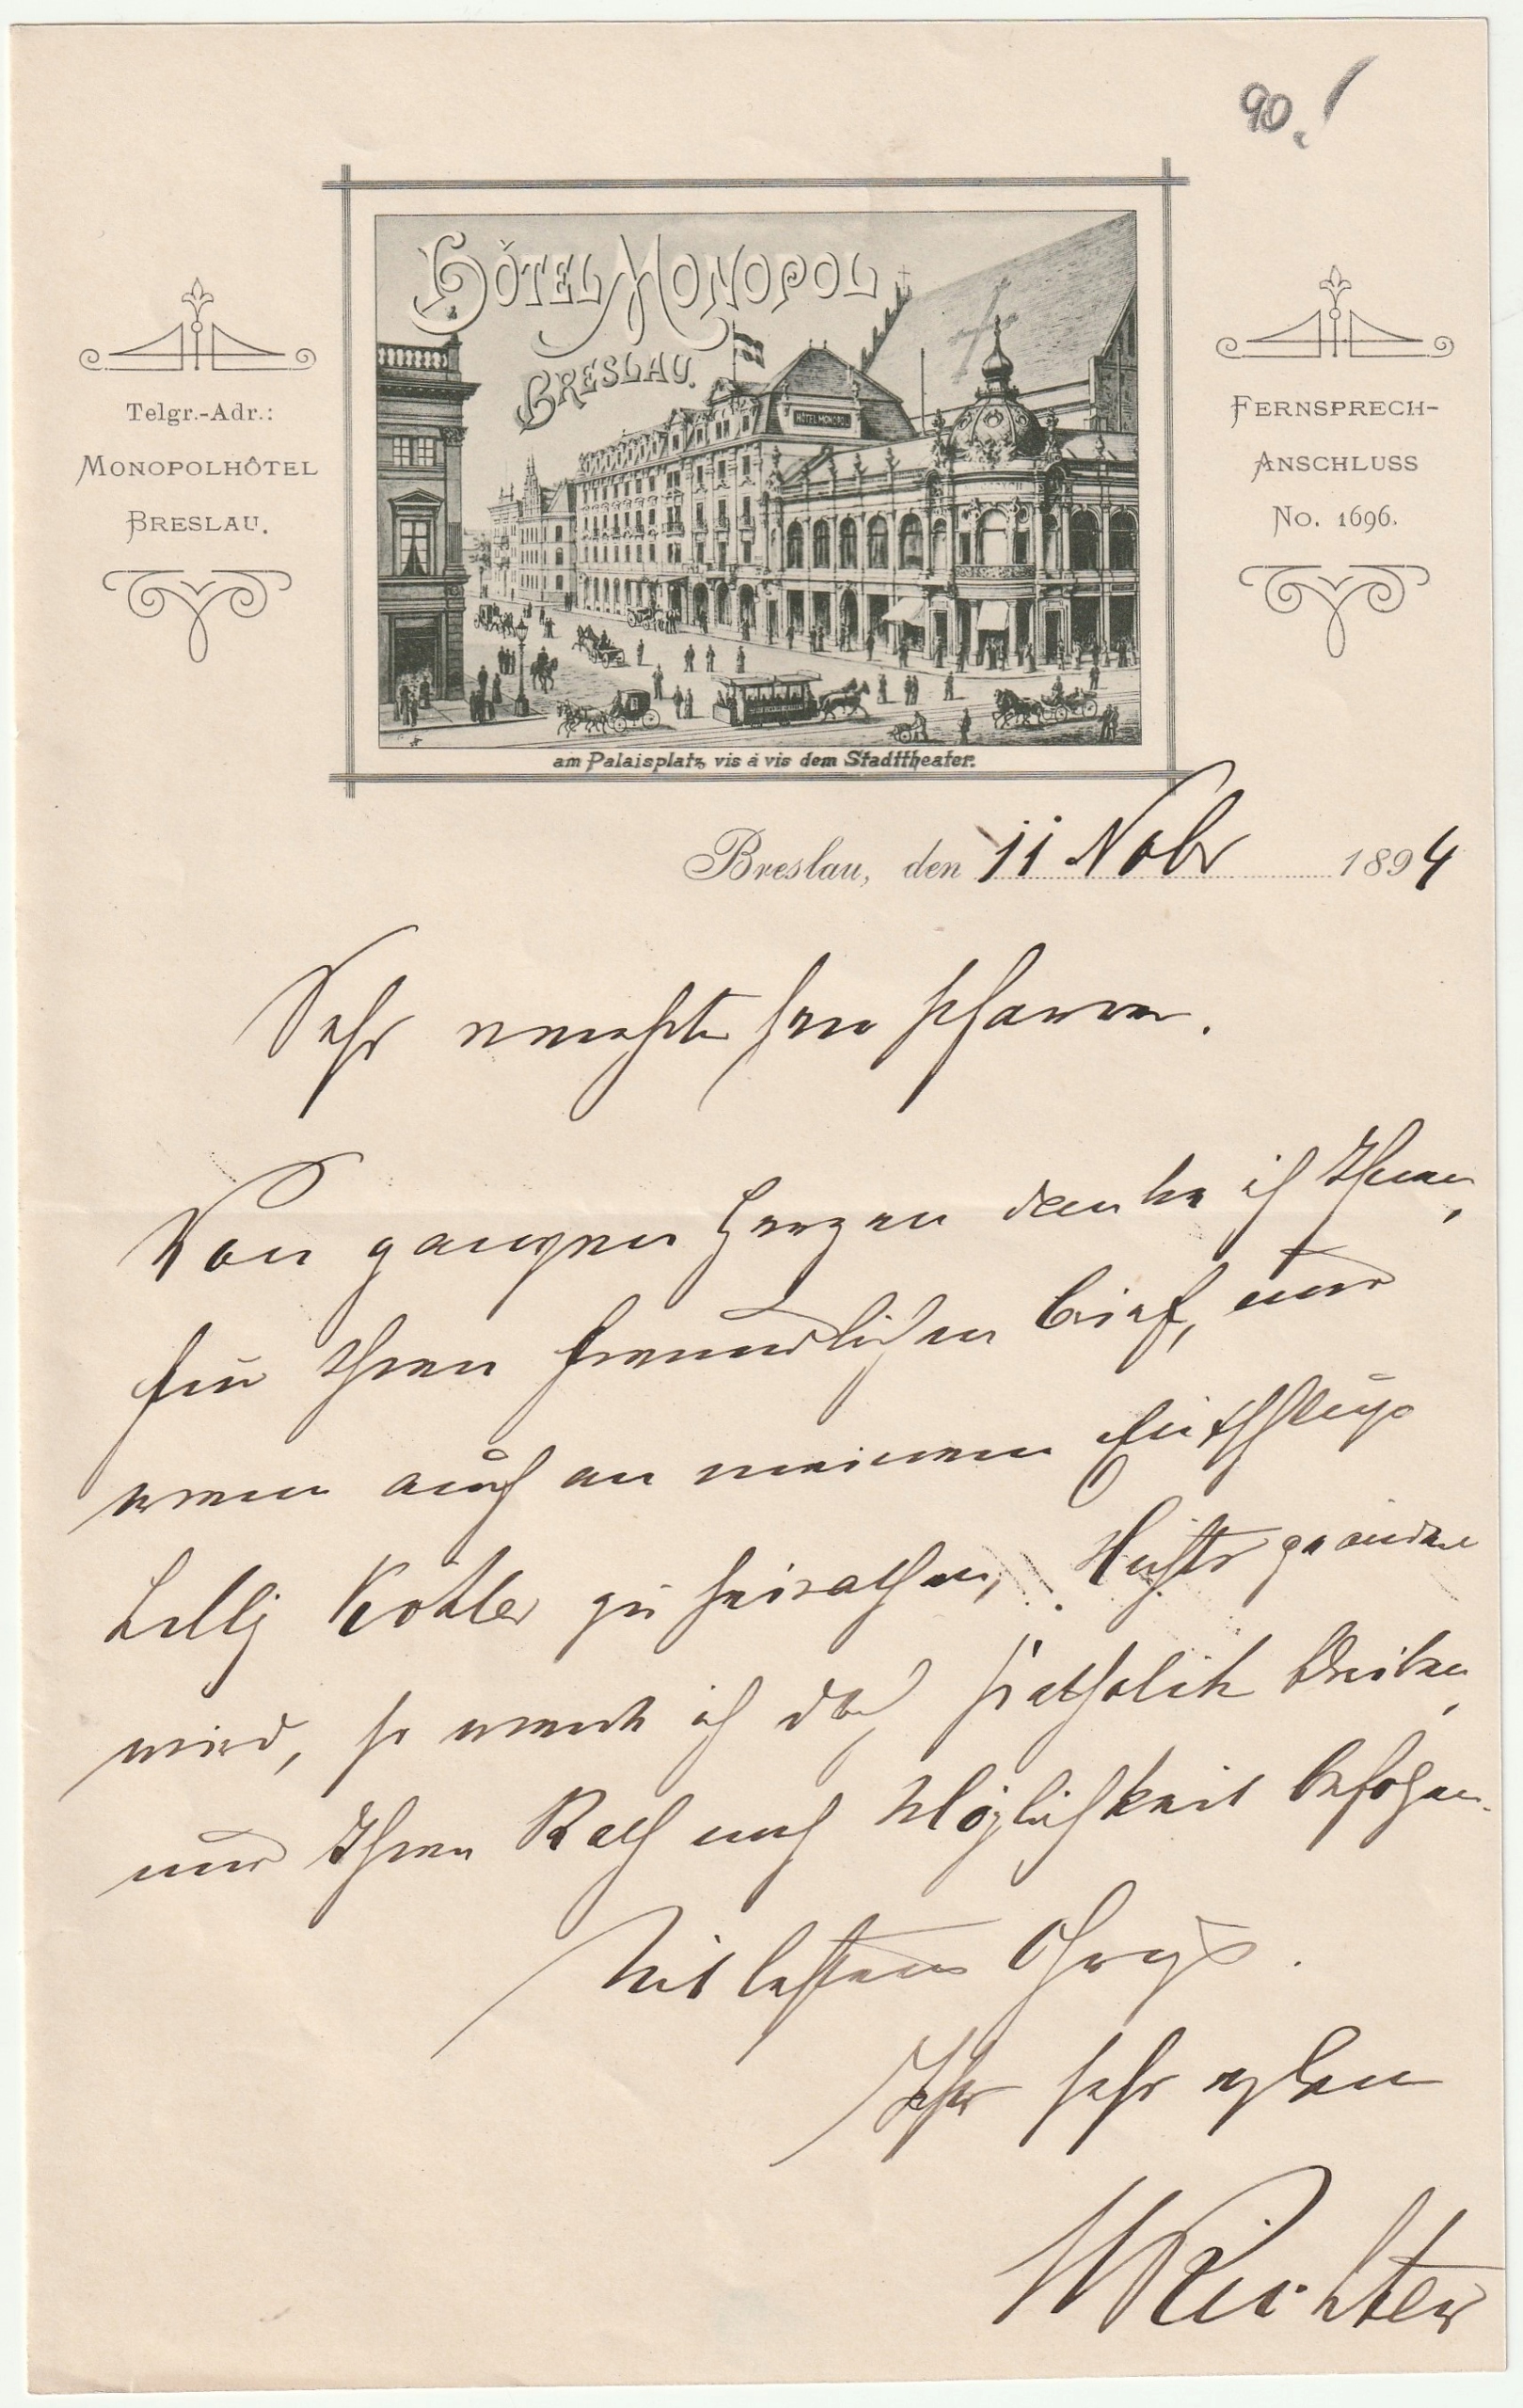 90.
HÔTEL MONOPOL
BRESLAU.
HÔTEL MONOPOL
am Palaisplatz, vis à vis dem Stadttheater.
Telgr.-Adr.:
MONOPOLHÔTEL
BRESLAU.
FERNSPRECH-
ANSCHLUSS
No. 1696.
Breslau, den 11 Nobr 1894
Sehr verehrter Herr Pfarrer.
Von ganzen Herzen danke ich Ihnen,
für Ihren freundlichen Brief, und
wenn auch an meinem Entschluß
Lilly Kohler zu heirathen, Nichts geändert
wird, so werde ich doch Katholik bleiben,
und Ihren Rath nach Möglichkeit befolgen.
Mit bestem Gruß.
Ihr sehr ergebener
Richter